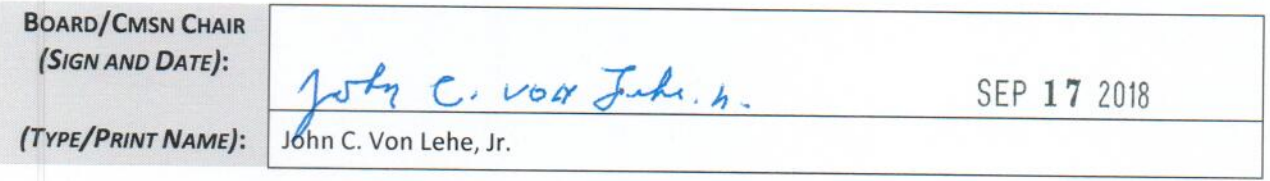 BOARD/CMSN CHAIR
(SIGN AND DATE):
John C. Von Lehe, Jr. SEP 17 2018
(TYPE/PRINT NAME): John C. Von Lehe, Jr.